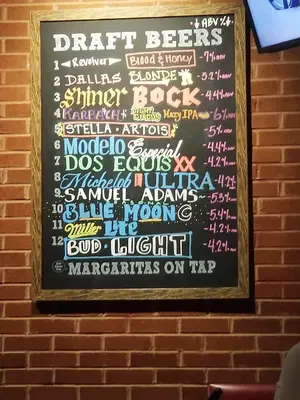 ABV %
DRAFT BEERS
1 Revolver Blood & Honey -7%
2 DALLAS BLONDE -5.2%
3 Shiner BOCK -4.4%
4 KARBACH Hazy IPA -6%
5 STELLA·ARTOIS -5%
6 Modelo Especial -4.4%
7 DOS EQUIS XX -4.2%
8 Michelob ULTRA -4.2%
9 SAMUEL ADAMS -5.3%
10 BLUE MOON -5.4%
11 Miller Lite -4.2%
12 BUD·LIGHT -4.2%
MARGARITAS ON TAP